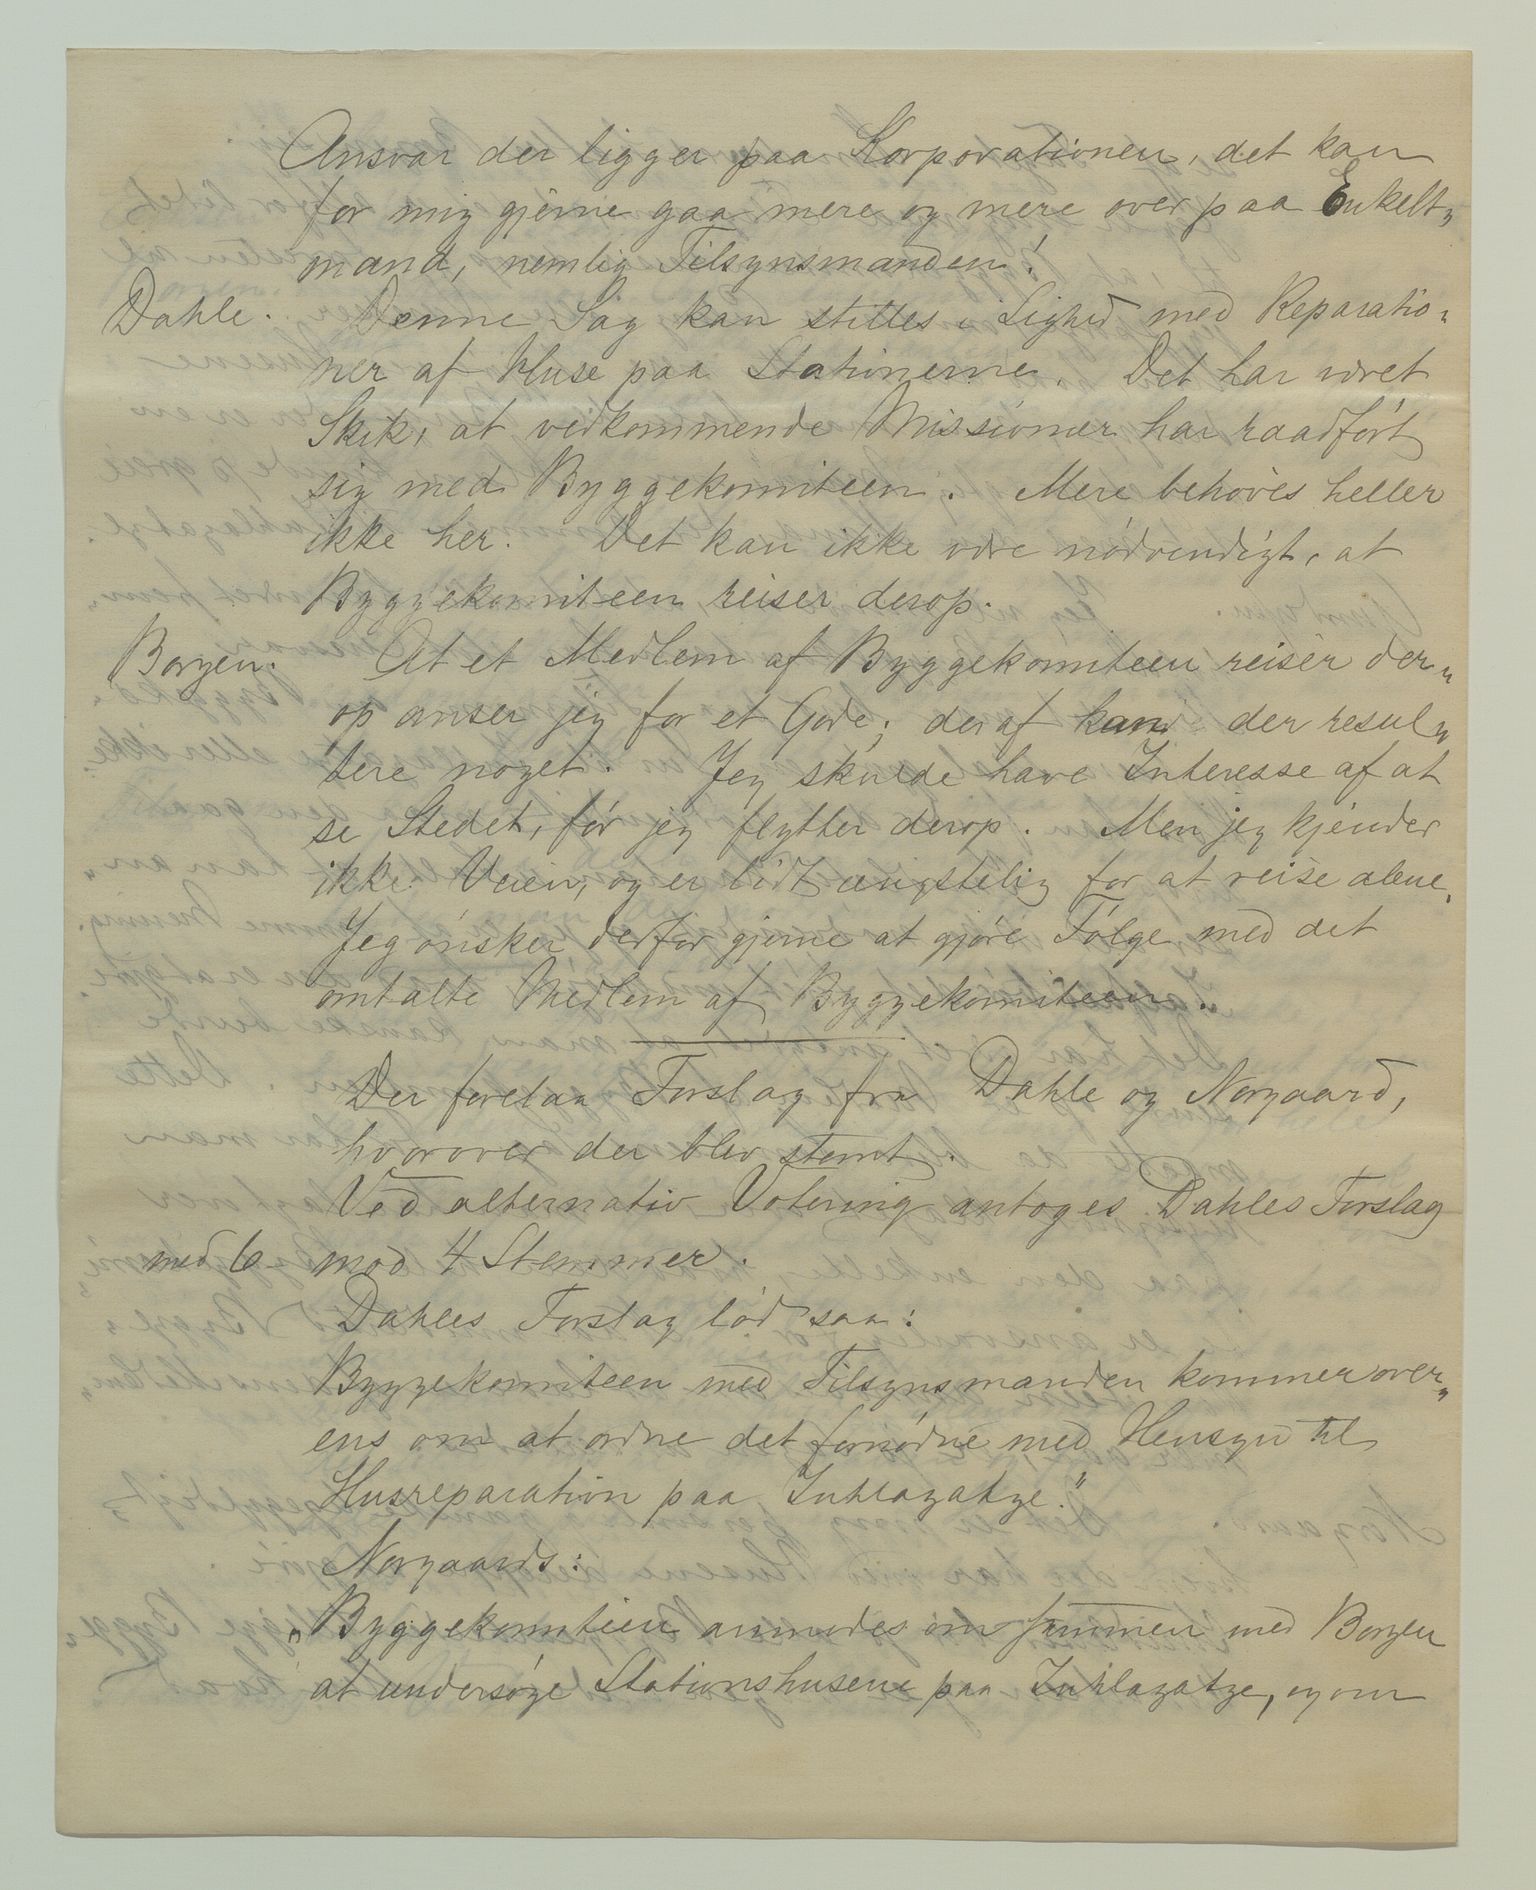 Ansvar der ligger paa Korporationen, det kan
for mig gjerne gaa mere og mere over paa Enkelt„
mand, nemlig Tilsynsmanden.
Dahle. Denne Sag kan stilles i Lighed med Reparatio„
ner af Huse paa Stationerne. Det har været
Skik, at vedkommende Missionær har raadført
sig med Byggekomiteen. Mere behøves heller
ikke her. Det kan ikke være nødvendigt, at
Byggekomiteen reiser derop.
Borgen. At et Medlem af Byggekomiteen reiser der„
op anser jeg for et Gode; deraf kan der resul„
tere noget. Jeg skulde have Interesse af at
se Stedet, før jeg flytter derop. Men jeg kjender
ikke Veien, og er lidt ængstelig for at reise alene.
Jeg ønsker derfor gjerne at gjøre Følge med det
omtalte Medlem af Byggekomiteen.
Der forelaa Forslag fra Dahle og Norgaard,
hvorover der blev stemt.
Ved alternativ Votering antoges Dahles Forslag
med 6 mod 4 Stemmer.
Dahles Forslag lød saa:
Byggekomiteen med Tilsynsmanden kommer over„
ens om at ordne det fornødne med Hensyn til
Husreparation paa Inhlazatze."
Norgaards:
„Byggekomiteen anmodes om sammen med Borgen
at undersøge Stationshusene paa Inhlazatze, og om